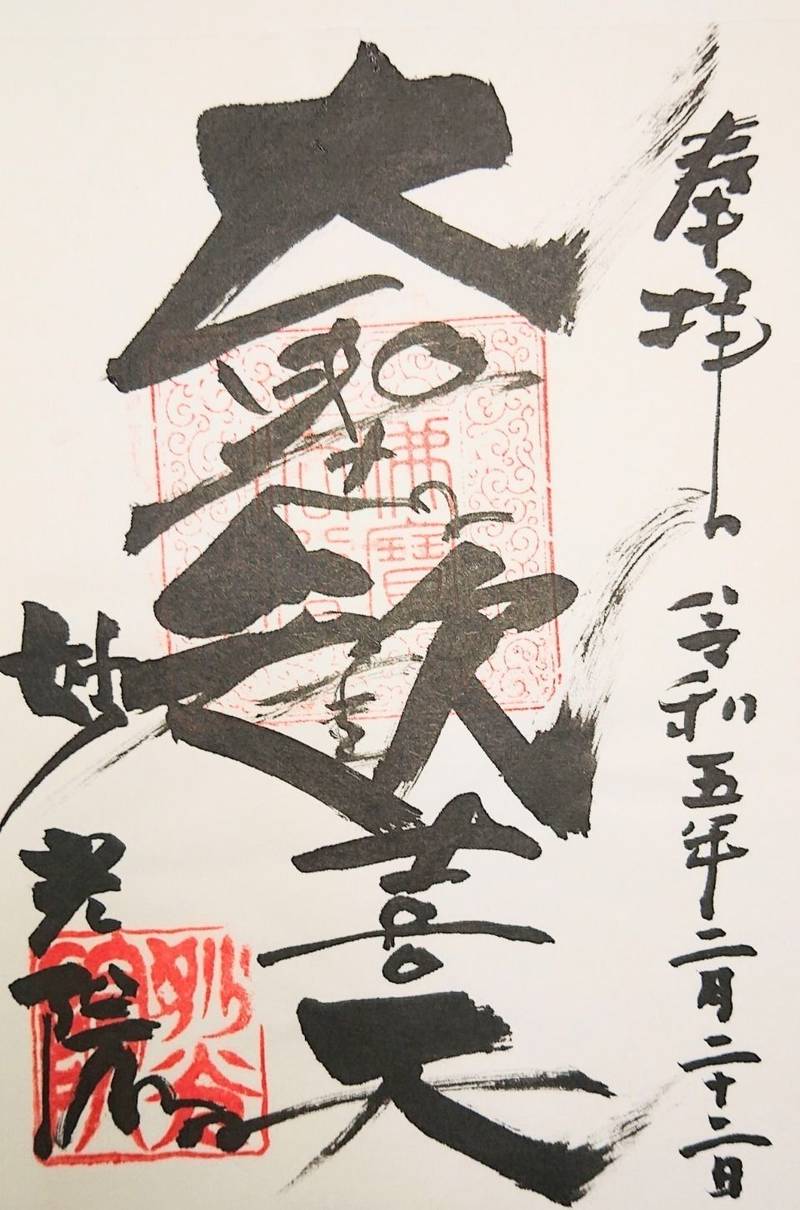 奉拝
令和五年二月二十二日
大聖歓喜天
妙光院
佛寶